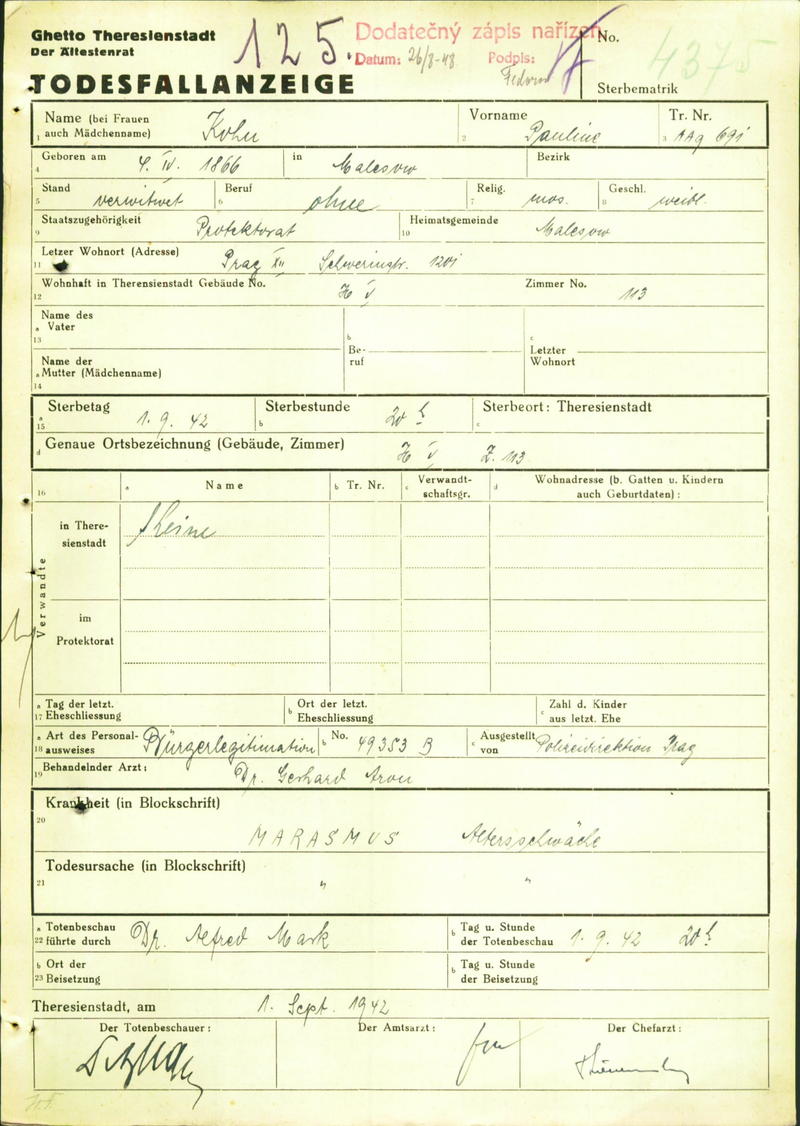 Ghetto Theresienstadt
Der Ältestenrat
125.
Dodatečný zápis nařízen
Datum: 26/8-48 Podpis:
No. 4375
TODESFALLANZEIGE
Sterbematrik
Name (bei Frauen auch Mädchenname) Kohn
1
Vorname Pauline
2
Tr. Nr. AAg 691
3
Geboren am 4. IV. 1866 in Malesow Bezirk
4
Stand verwitwet Beruf ohne Relig. mos. Geschl. weibl.
5 6 7 8
Staatszugehörigkeit Protektorat Heimatsgemeinde Malesow
9 10
Letzer Wohnort (Adresse) Prag XII Schwerinstr. 1201
11
Wohnhaft in Therensienstadt Gebäude No. H V Zimmer No. 113
12
Name des
a Vater
13
b Be-
ruf
c Letzter
Wohnort
Name der
a Mutter (Mädchenname)
14
Sterbetag 1. 9. 42 Sterbestunde 20 h Sterbeort: Theresienstadt
a 15 b c
Genaue Ortsbezeichnung (Gebäude, Zimmer) H V Z. 113
d
16 a Name b Tr. Nr. c Verwandt-
schaftsgr. d Wohnadresse (b. Gatten u. Kindern
auch Geburtdaten) :
Verwandte
in There-
sienstadt
Keine
im
Protektorat
a Tag der letzt.
17 Eheschliessung
b Ort der letzt.
Eheschliessung
c Zahl d. Kinder
aus letzt. Ehe
a Art des Personal-
18 ausweises Bürgerlegitimation b No. 49353 B c Ausgestellt
von Polizeidirektion Prag
Behandelnder Arzt: Dr. Gerhard Aron
19
Krankheit (in Blockschrift)
20
MARASMUS Altersschwäche
Todesursache (in Blockschrift)
21
" "
a Totenbeschau
22 führte durch Dr. Alfred Mark b Tag u. Stunde
der Totenbeschau 1. 9. 42 20 h
b Ort der
23 Beisetzung
b Tag u. Stunde
der Beisetzung
Theresienstadt, am 1. Sept. 1942
Der Totenbeschauer: Der Amtsarzt: Der Chefarzt: